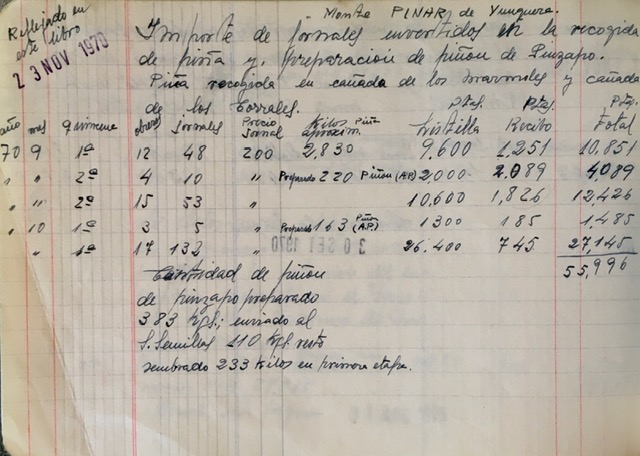 Monte PINAR de Yunquera.
Reflejado en
este libro
23 NOV 1970
Importe de jornales invertidos en la recogida
de piña y preparacion de piñon de Pinzapo.
Piña recogida en cañada de los marmoles y cañada
de los Corrales.
año mes Quincena obreros Jornales Precio Jornal Kilos Piña aproxim. Ptas. Listilla Ptas. Recibo Ptas. Total
70 9 1ª 12 48 200 2,830 9,600 1,251 10,851
" " 2ª 4 10 " Preparado 220 Piñon (A.P.) 2,000 2.089 4089
" " 2ª 15 53 " 10,600 1,826 12,426
" 10 1ª 3 5 " Preparado 163 Piñon (A.P.) 1300 185 1,485
" 1ª 17 132 " 26.400 745 27,145
30 SET 1970
55,996
Cantidad de piñon
de pinzapo preparado
383 Kgs.; enviado al
S. Semillas 110 Kgs resto
sembrado 233 Kilos en primera etapa.